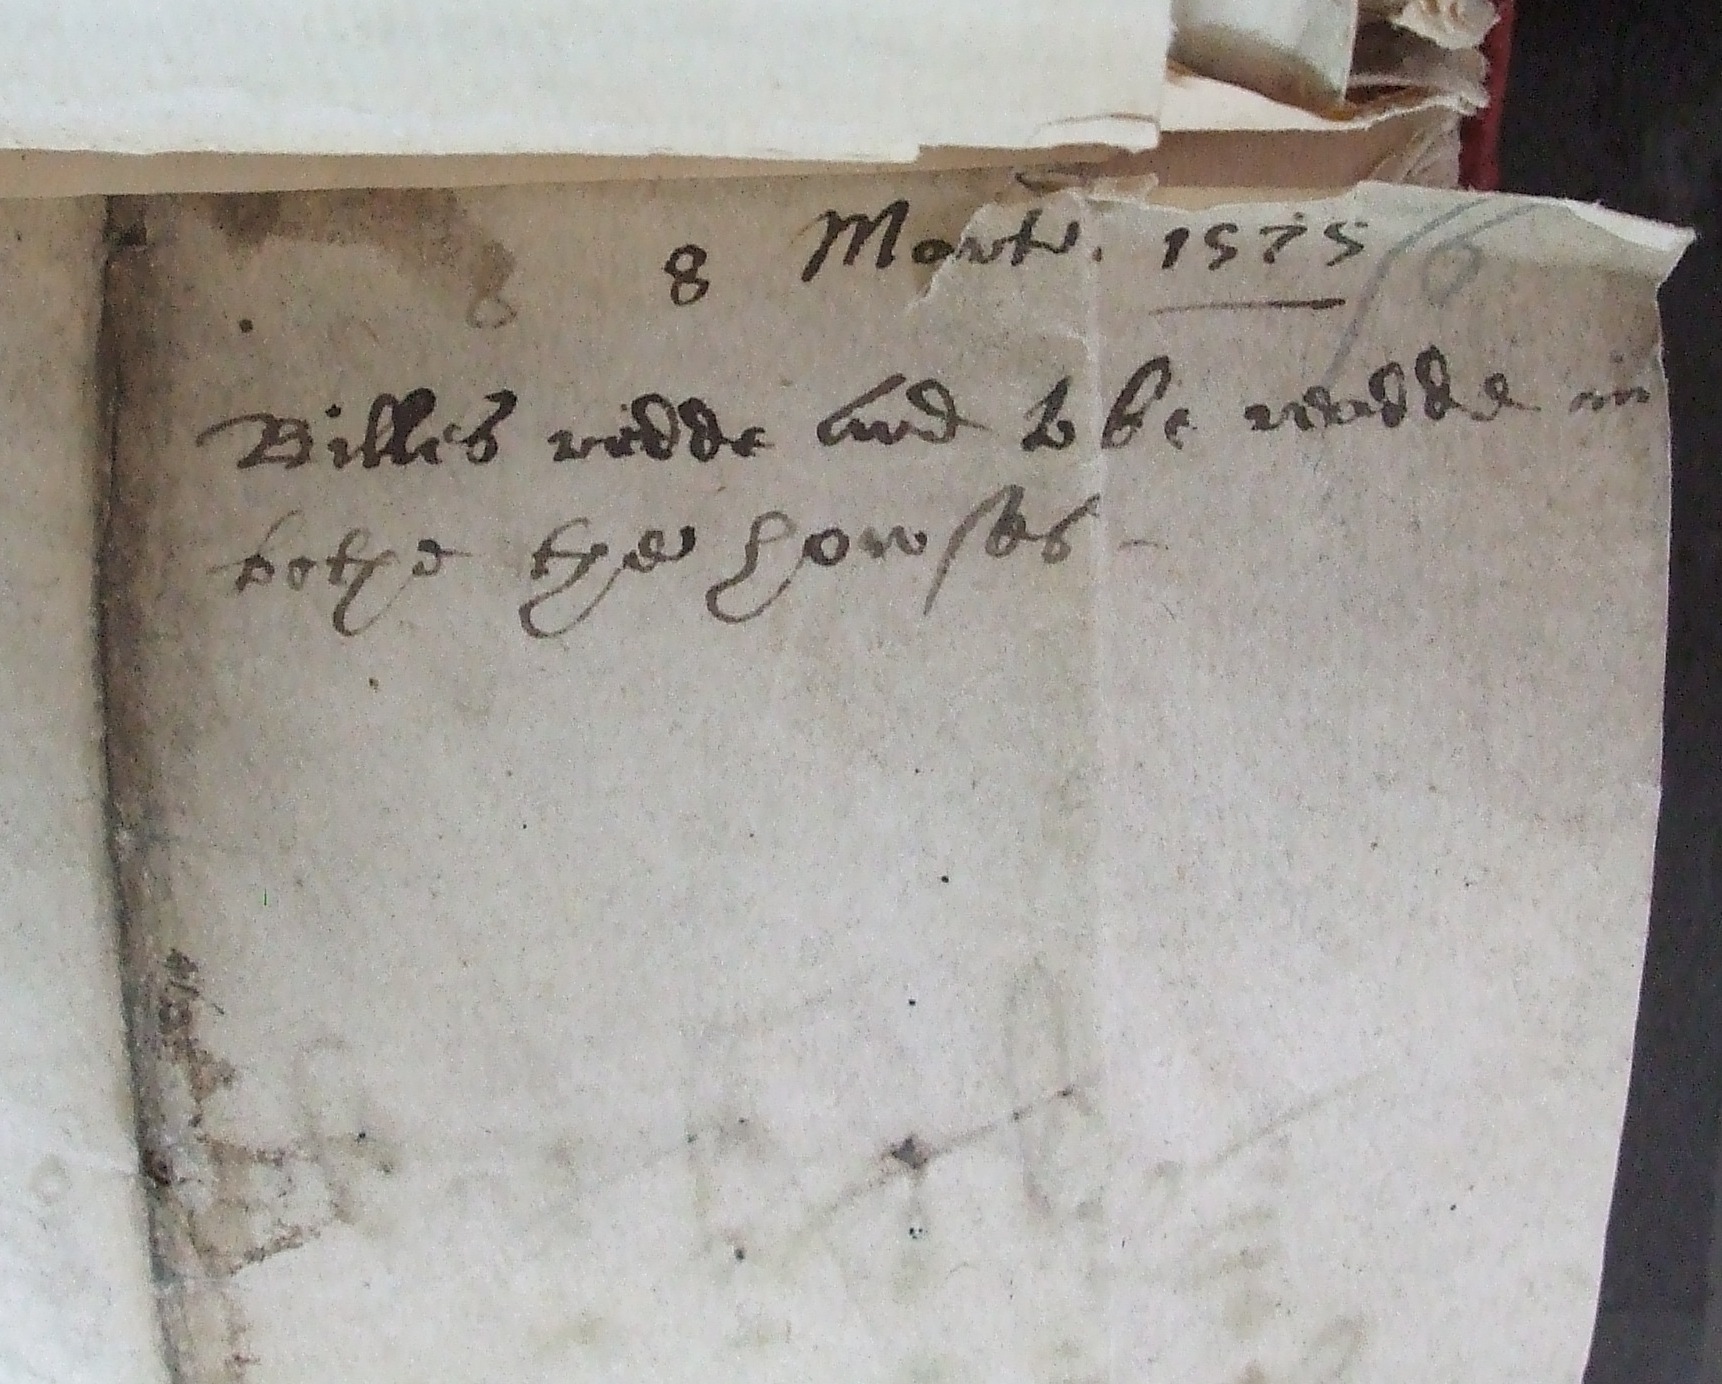 8 Martii. 1575
Billes redde and to be redde in
bothe the howses